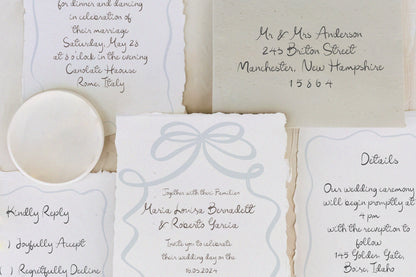 for dinner and dancing
in celebration of
their marriage
Saturday, May 28
at 8 o'clock in the evening
Canolate Haouse
Rome, Italy
Mr & Mrs Anderson
245 Briton Street
Manchester, New Hampshire
15864
Kindly Reply
Joyfully Accept
Regretfully Decline
Together with their Families
Maria Louisa Bernadett
& Roberto Garcia
Invite you to celebrate
their wedding day on the
16.05.2024
Details
Our wedding ceremony
will begin promptly at
4 pm
with the reception to
follow
145 Golder Gate,
Boise, Idaho